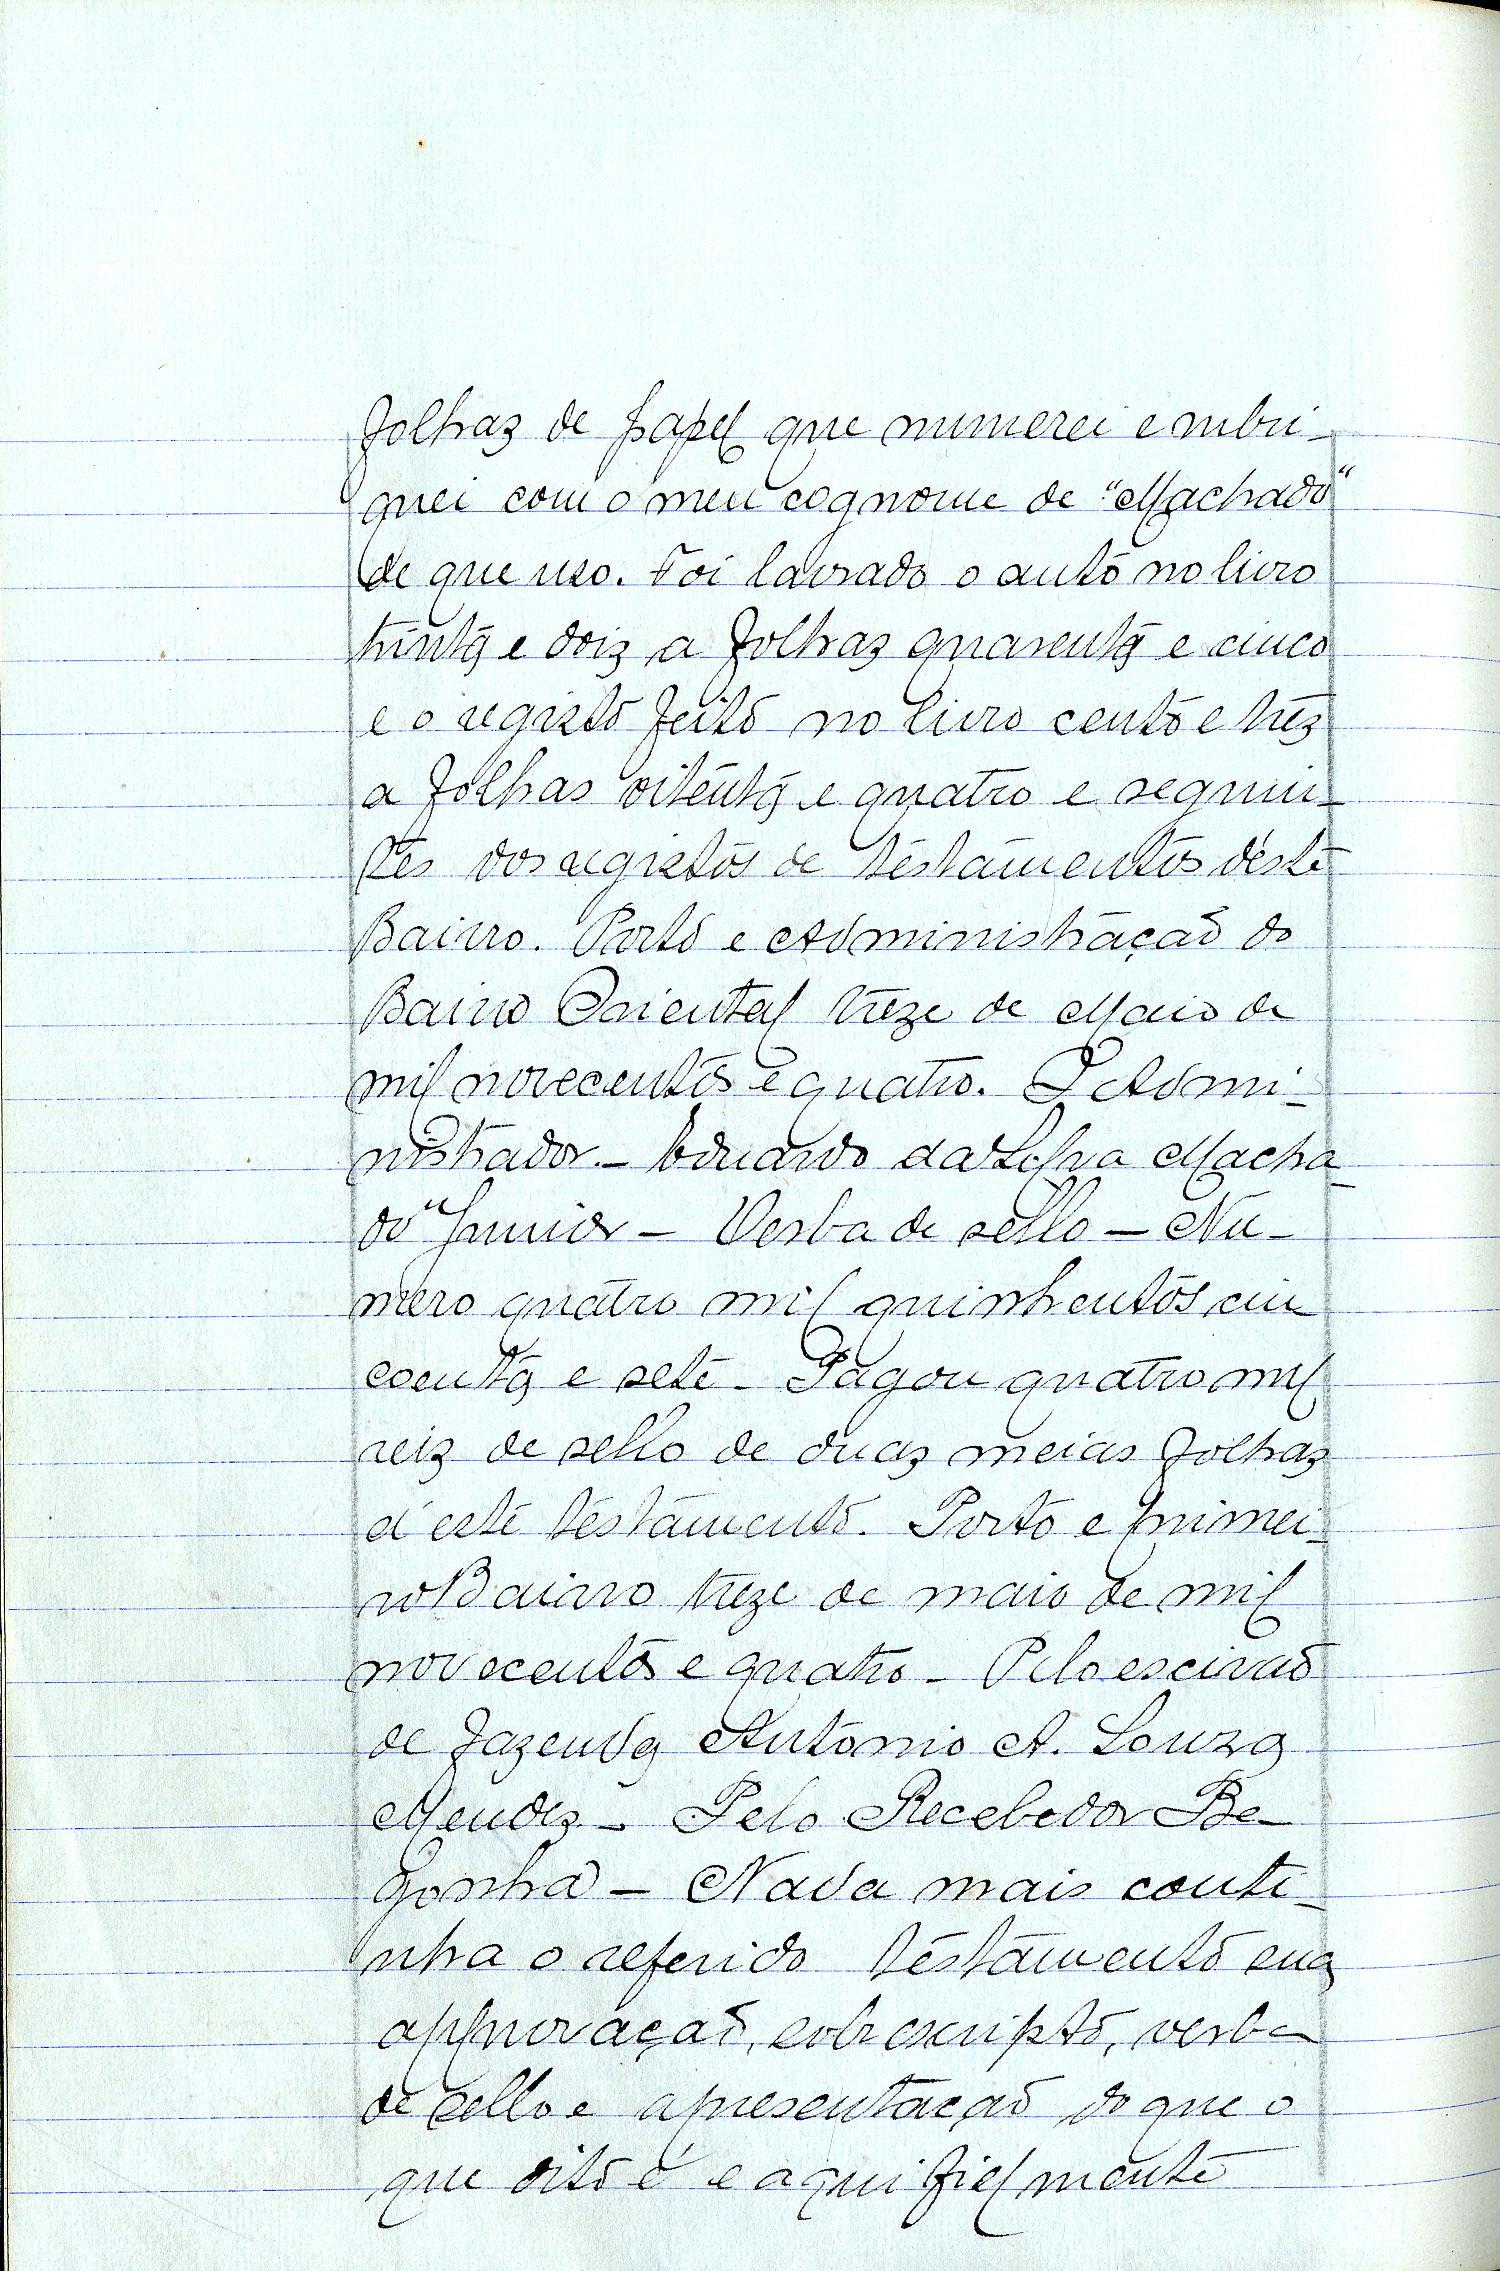 folhas de papel que numerei e rubri-
quei com o meu cognome de "Machado"
de que uso. Foi lavrado o auto no livro
trinta e dois a folhas quarenta e cinco
e o registo feito no livro cento e tres
a folhas oitenta e quatro e seguin-
tes dos registos de testamentos deste
Bairro. Porto e Administração do
Bairro Oriental treze de Maio de
mil novecentos e quatro. O Admi-
nistrador - Eduardo da Silva Macha-
do Junior - Verba de sello - Nu-
mero quatro mil quinhentos cin
coenta e sete - Pagou quatro mil
reis de sello de duas meias folhas
d'este testamento. Porto e primei-
ro Bairro treze de maio de mil
novecentos e quatro - Pelo escrivão
de fazenda Antonio A. Souza
Mendes - Pelo Recebedor Be-
gonha - Nada mais conti-
nha o referido testamento sua
approvação, sobrescripto, verba
de sello e apresentação do que o
que dito é e aqui fielmente